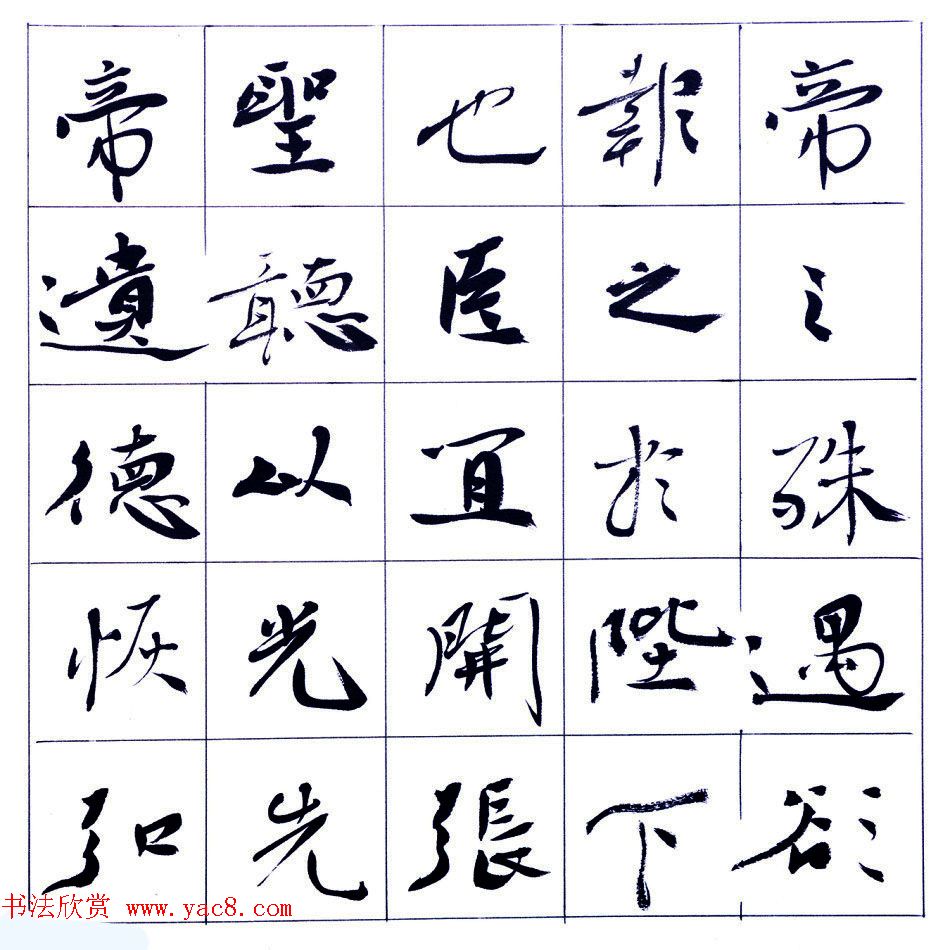 帝之殊遇欲
報之於陛下
也臣宜開張
聖聽以光先
帝遺德恢弘
书法欣赏 www.yac8.com